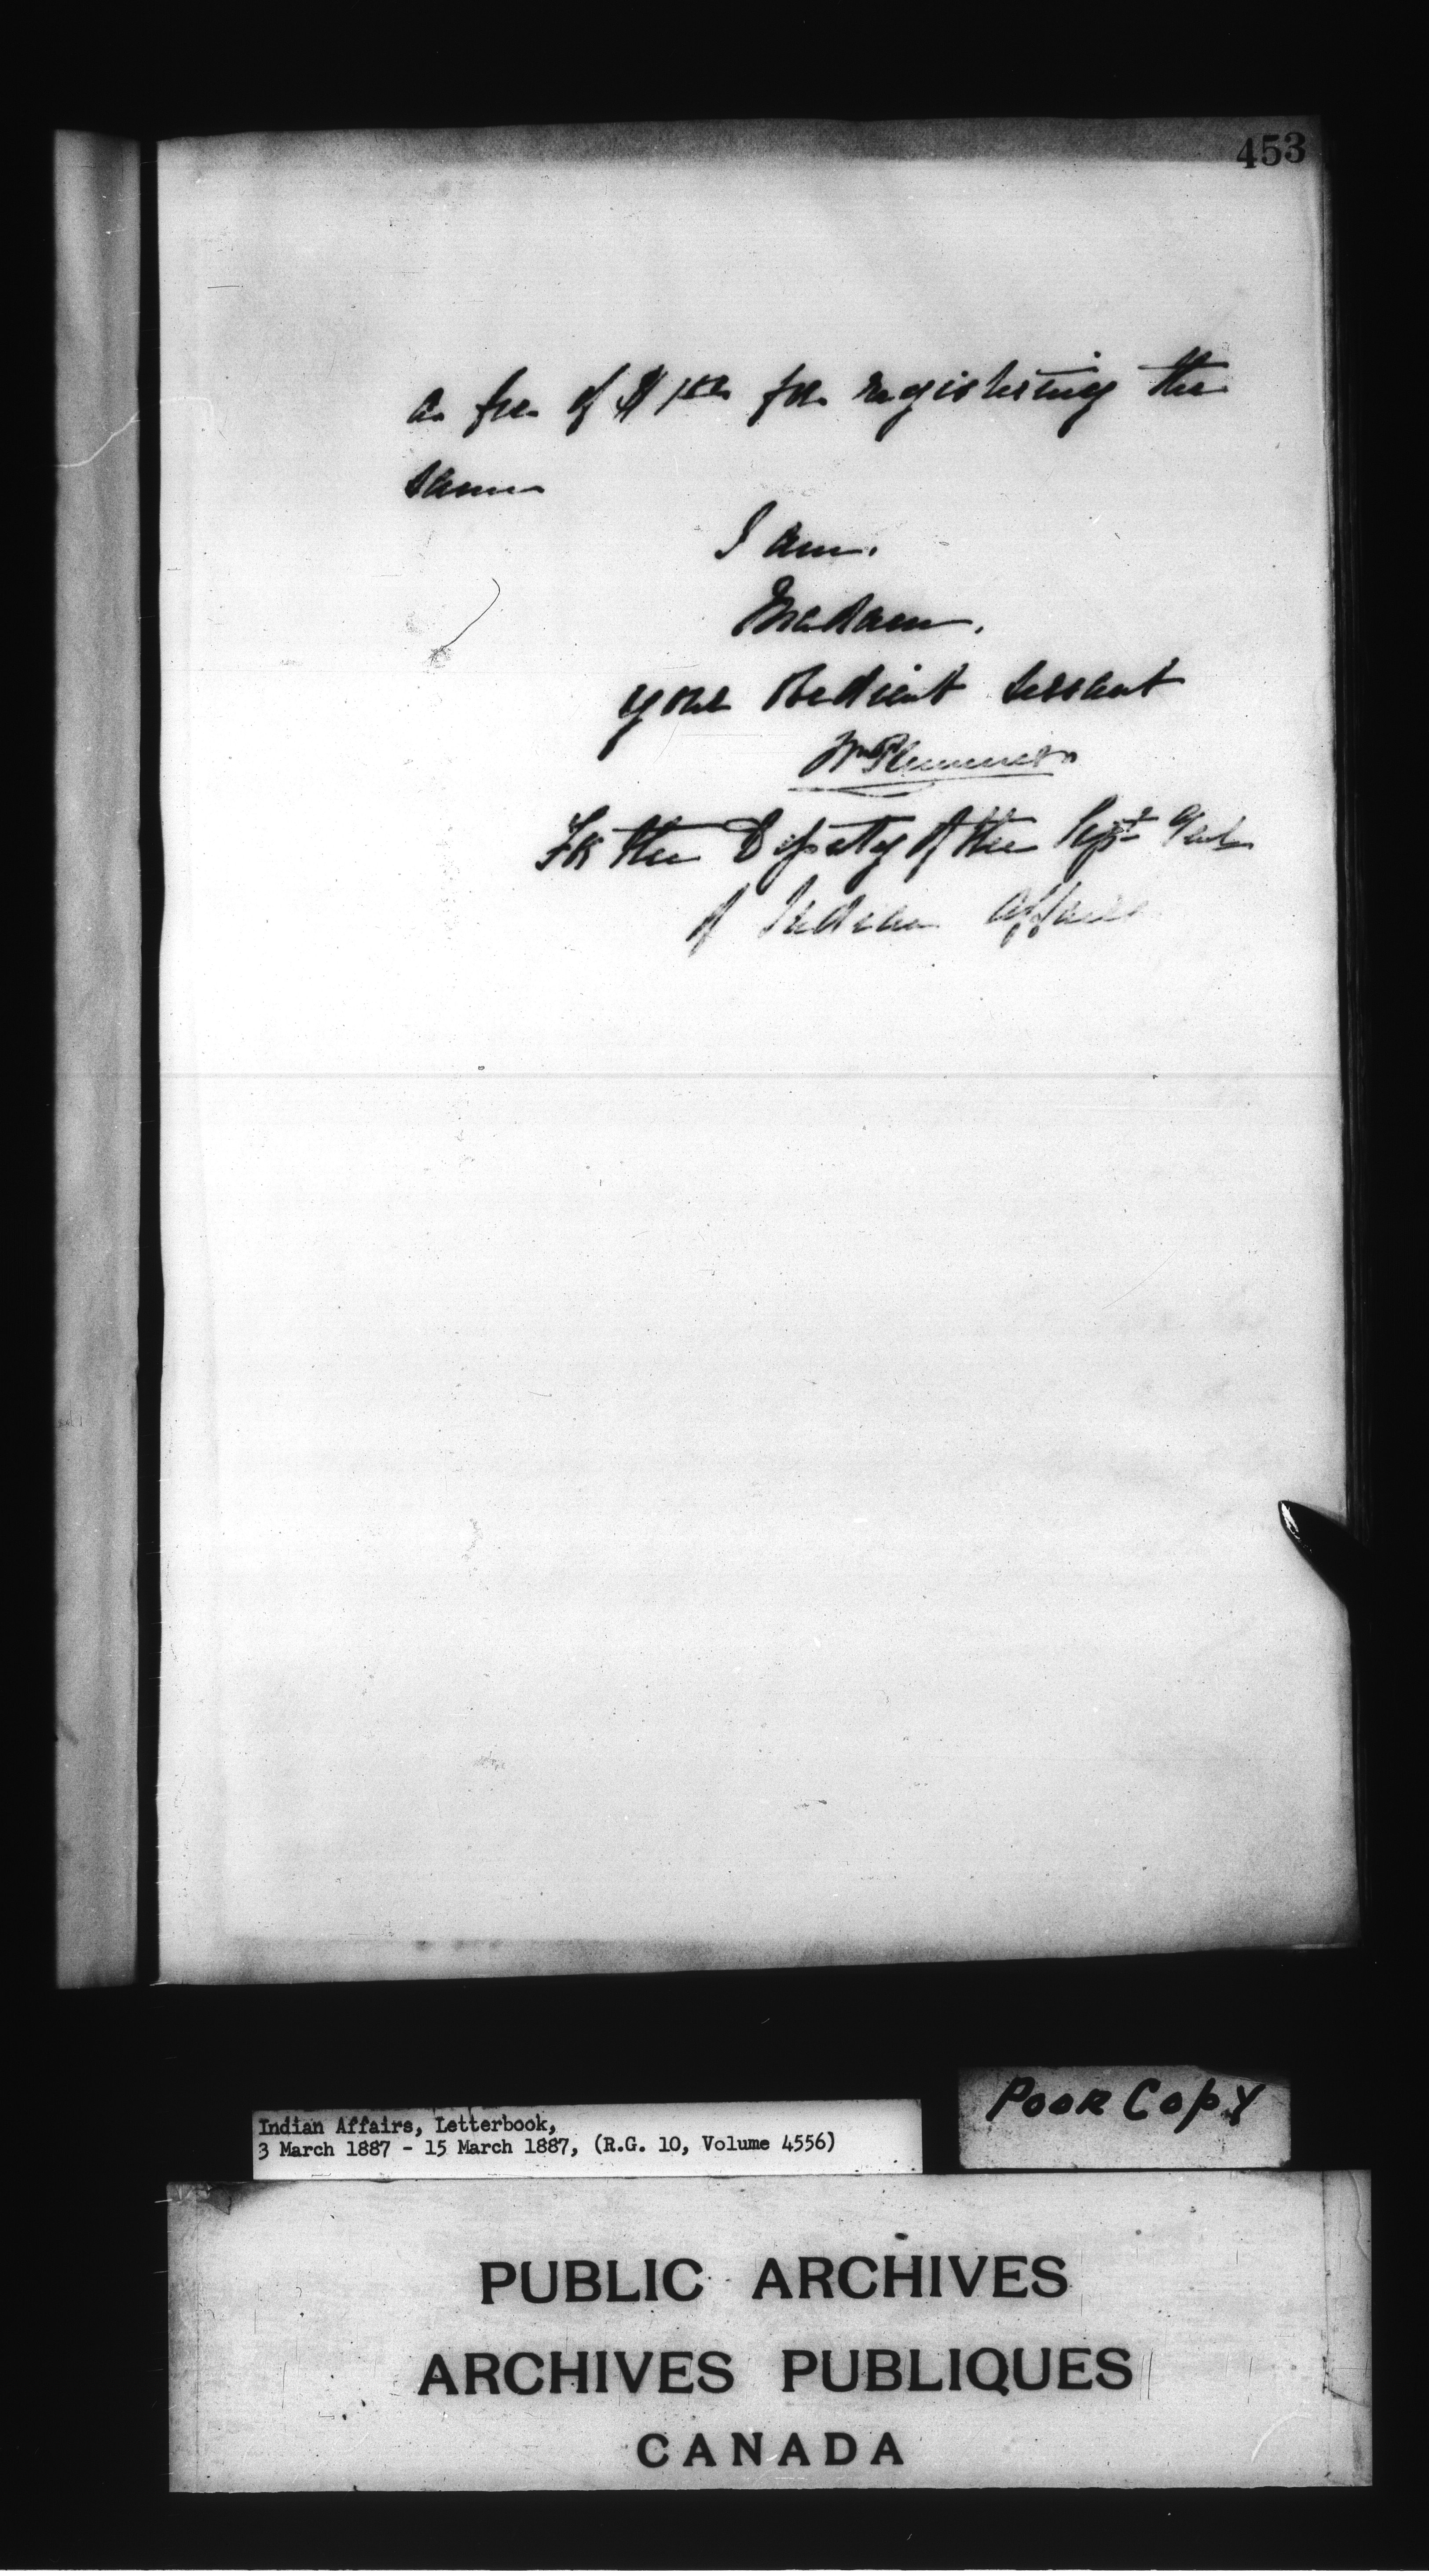 453
a fee of $1.00 for registering the
same
I am.
Madam.
your obedient servant
Wm Plummer
For the Deputy of the Supt Genl
of Indian Affairs
Poor Copy
Indian Affairs, Letterbook,
3 March 1887 - 15 March 1887, (R.G. 10, Volume 4556)
PUBLIC ARCHIVES
ARCHIVES PUBLIQUES
CANADA